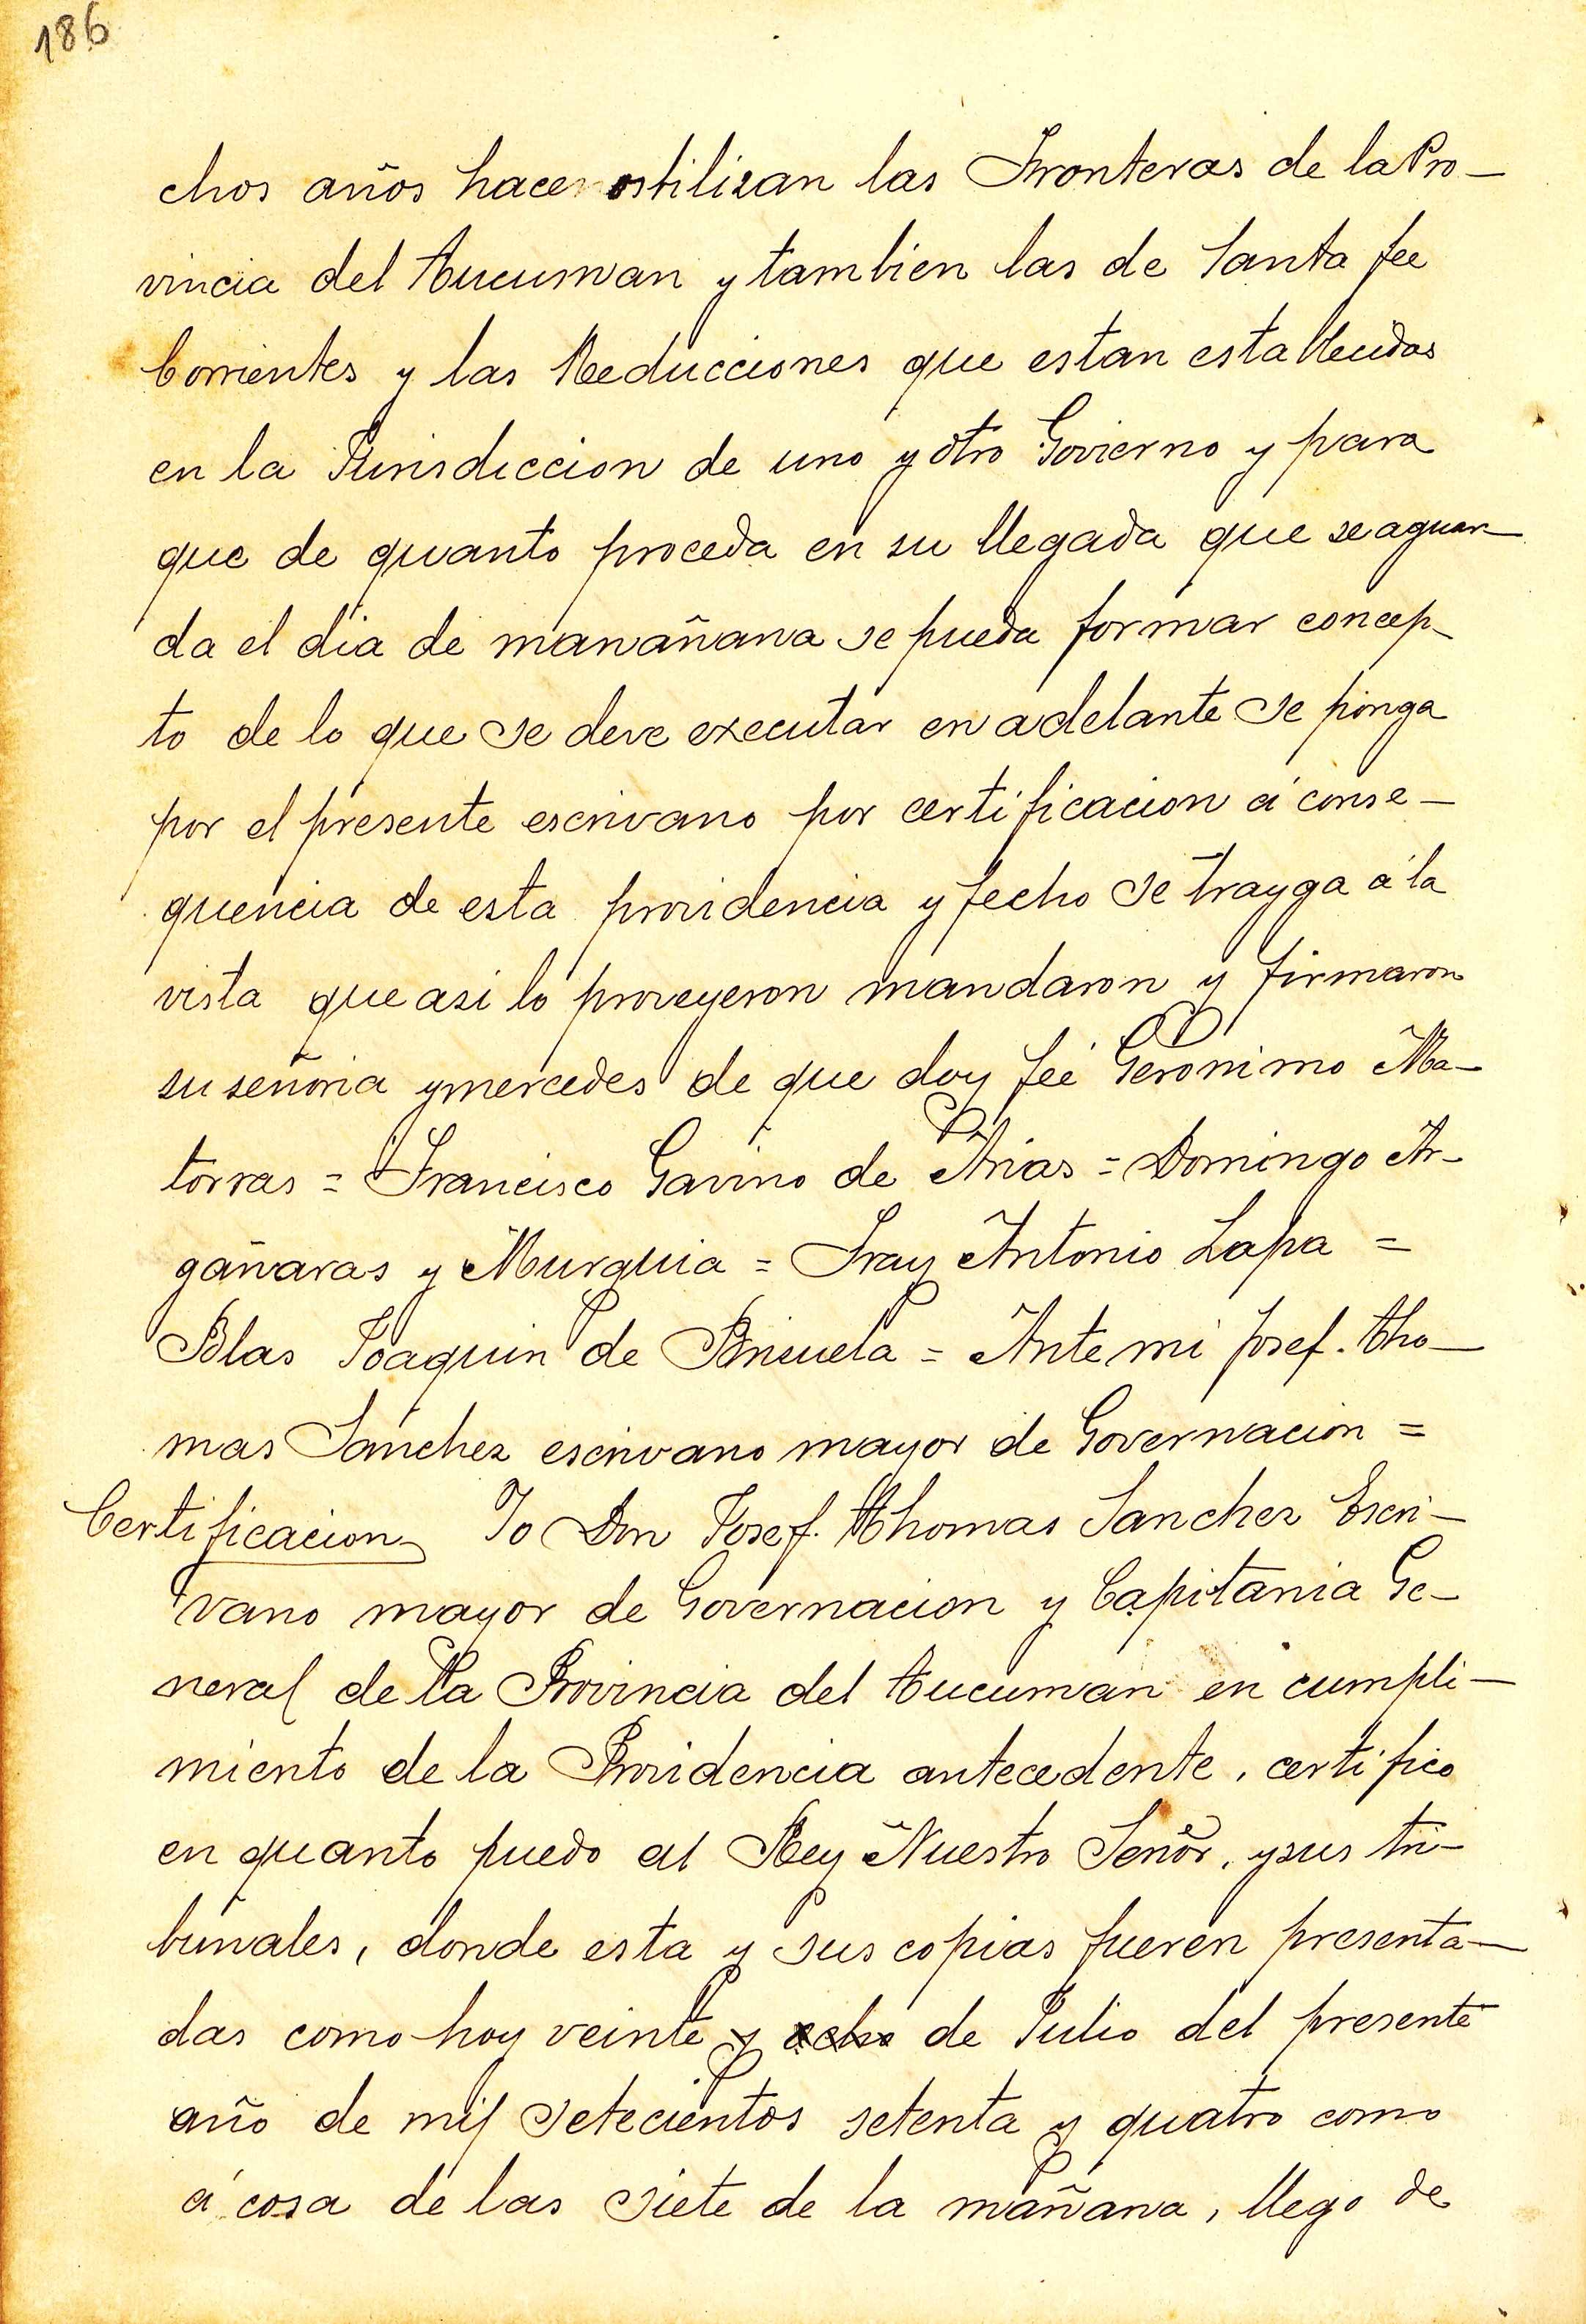 186
chos años hace ostilizan las Fronteras de la Pro-
vincia del Tucuman y tambien las de Santa fee
Corrientes y las Reducciones que estan establecidas
en la Jurisdiccion de uno y otro Govierno y para
que de quanto proceda en su llegada que se aguar-
da el dia de manañana se pueda formar concep-
to de lo que se deve executar en adelante se ponga
por el presente escrivano por certificacion á conse-
quencia de esta providencia y fecho se trayga á la
vista que asi lo proveyeron mandaron y firmaron
su señoria y mercedes de que doy feé Geronimo Ma-
torras = Francisco Gavino de Arias = Domingo Ar-
gañaras y Murguia = Fray Antonio Lapa =
Blas Joaquin de Brizuela = Ante mi Josef. Tho-
mas Sanchez escrivano mayor de Governacion =
Certificacion Yo Don Josef. Thomas Sanchez Escri-
vano mayor de Governacion y Capitania Ge-
neral de la Provincia del Tucuman en cumpli-
miento de la Providencia antecedente, certifico
en quanto puedo al Rey Nuestro Señor, y sus tri-
bunales, donde esta y sus copias fueren presenta-
das como hoy veinte y ocho de Julio del presente
año de mil setecientos setenta y quatro como
á cosa de las siete de la mañana, llego de